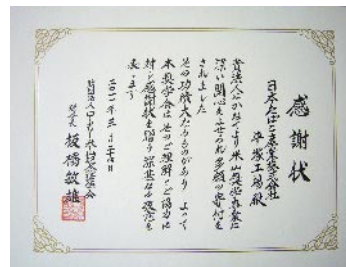 感謝状
日本たばこ産業株式会社
平塚工場殿
貴法人にかねてより米山奨学事業に
深い関心をよせられ多額の寄付を
されました
その功績大なるものがあり よって
本奨学会はそのご理解とご協力に
対し感謝状を贈り深甚なる敬意を
表します
二〇一一年三月二十
財団法人ロータリー米山記念奨学会
理事長 板橋敏雄